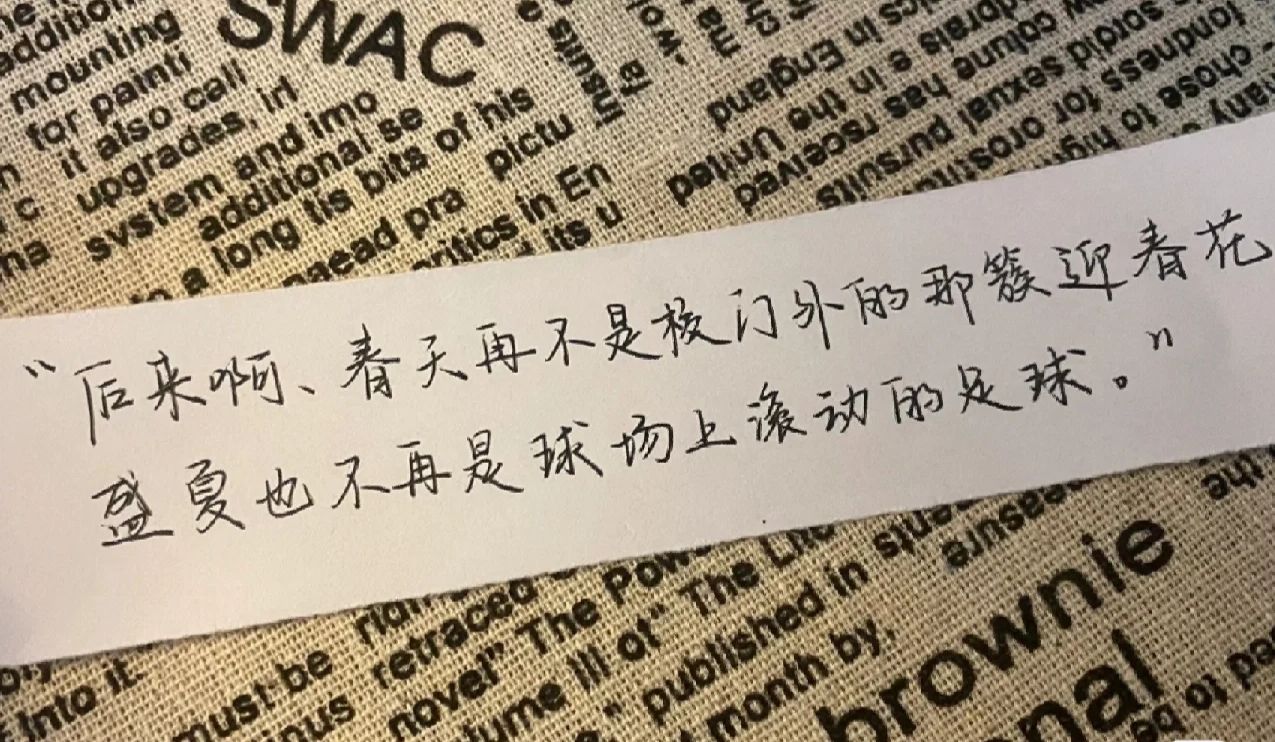 addition
mounting
for painti
it also call
upgrades, in
system and imo
additional se
a long tis bits of his
pictu
critics in En
its u
SWAC
England
e in the United
column has rsceived
soroid sexual pursuits
fondness for
chose to
“后来啊、春天再不是校门外的那簇迎春花
盛夏也不再是球场上滚动的足球。”
into it
must be
retraced
novel" The Pow
lume III of" The Lite
" published in
month by,
brownie
nal
ed to be
the